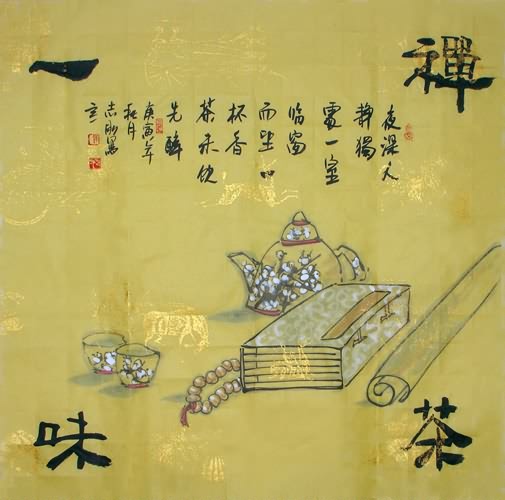 禪
茶
一
味
夜深人
静獨
處一室
临窗
而坐口
杯香
茶未飲
先醉
庚寅年
秋月